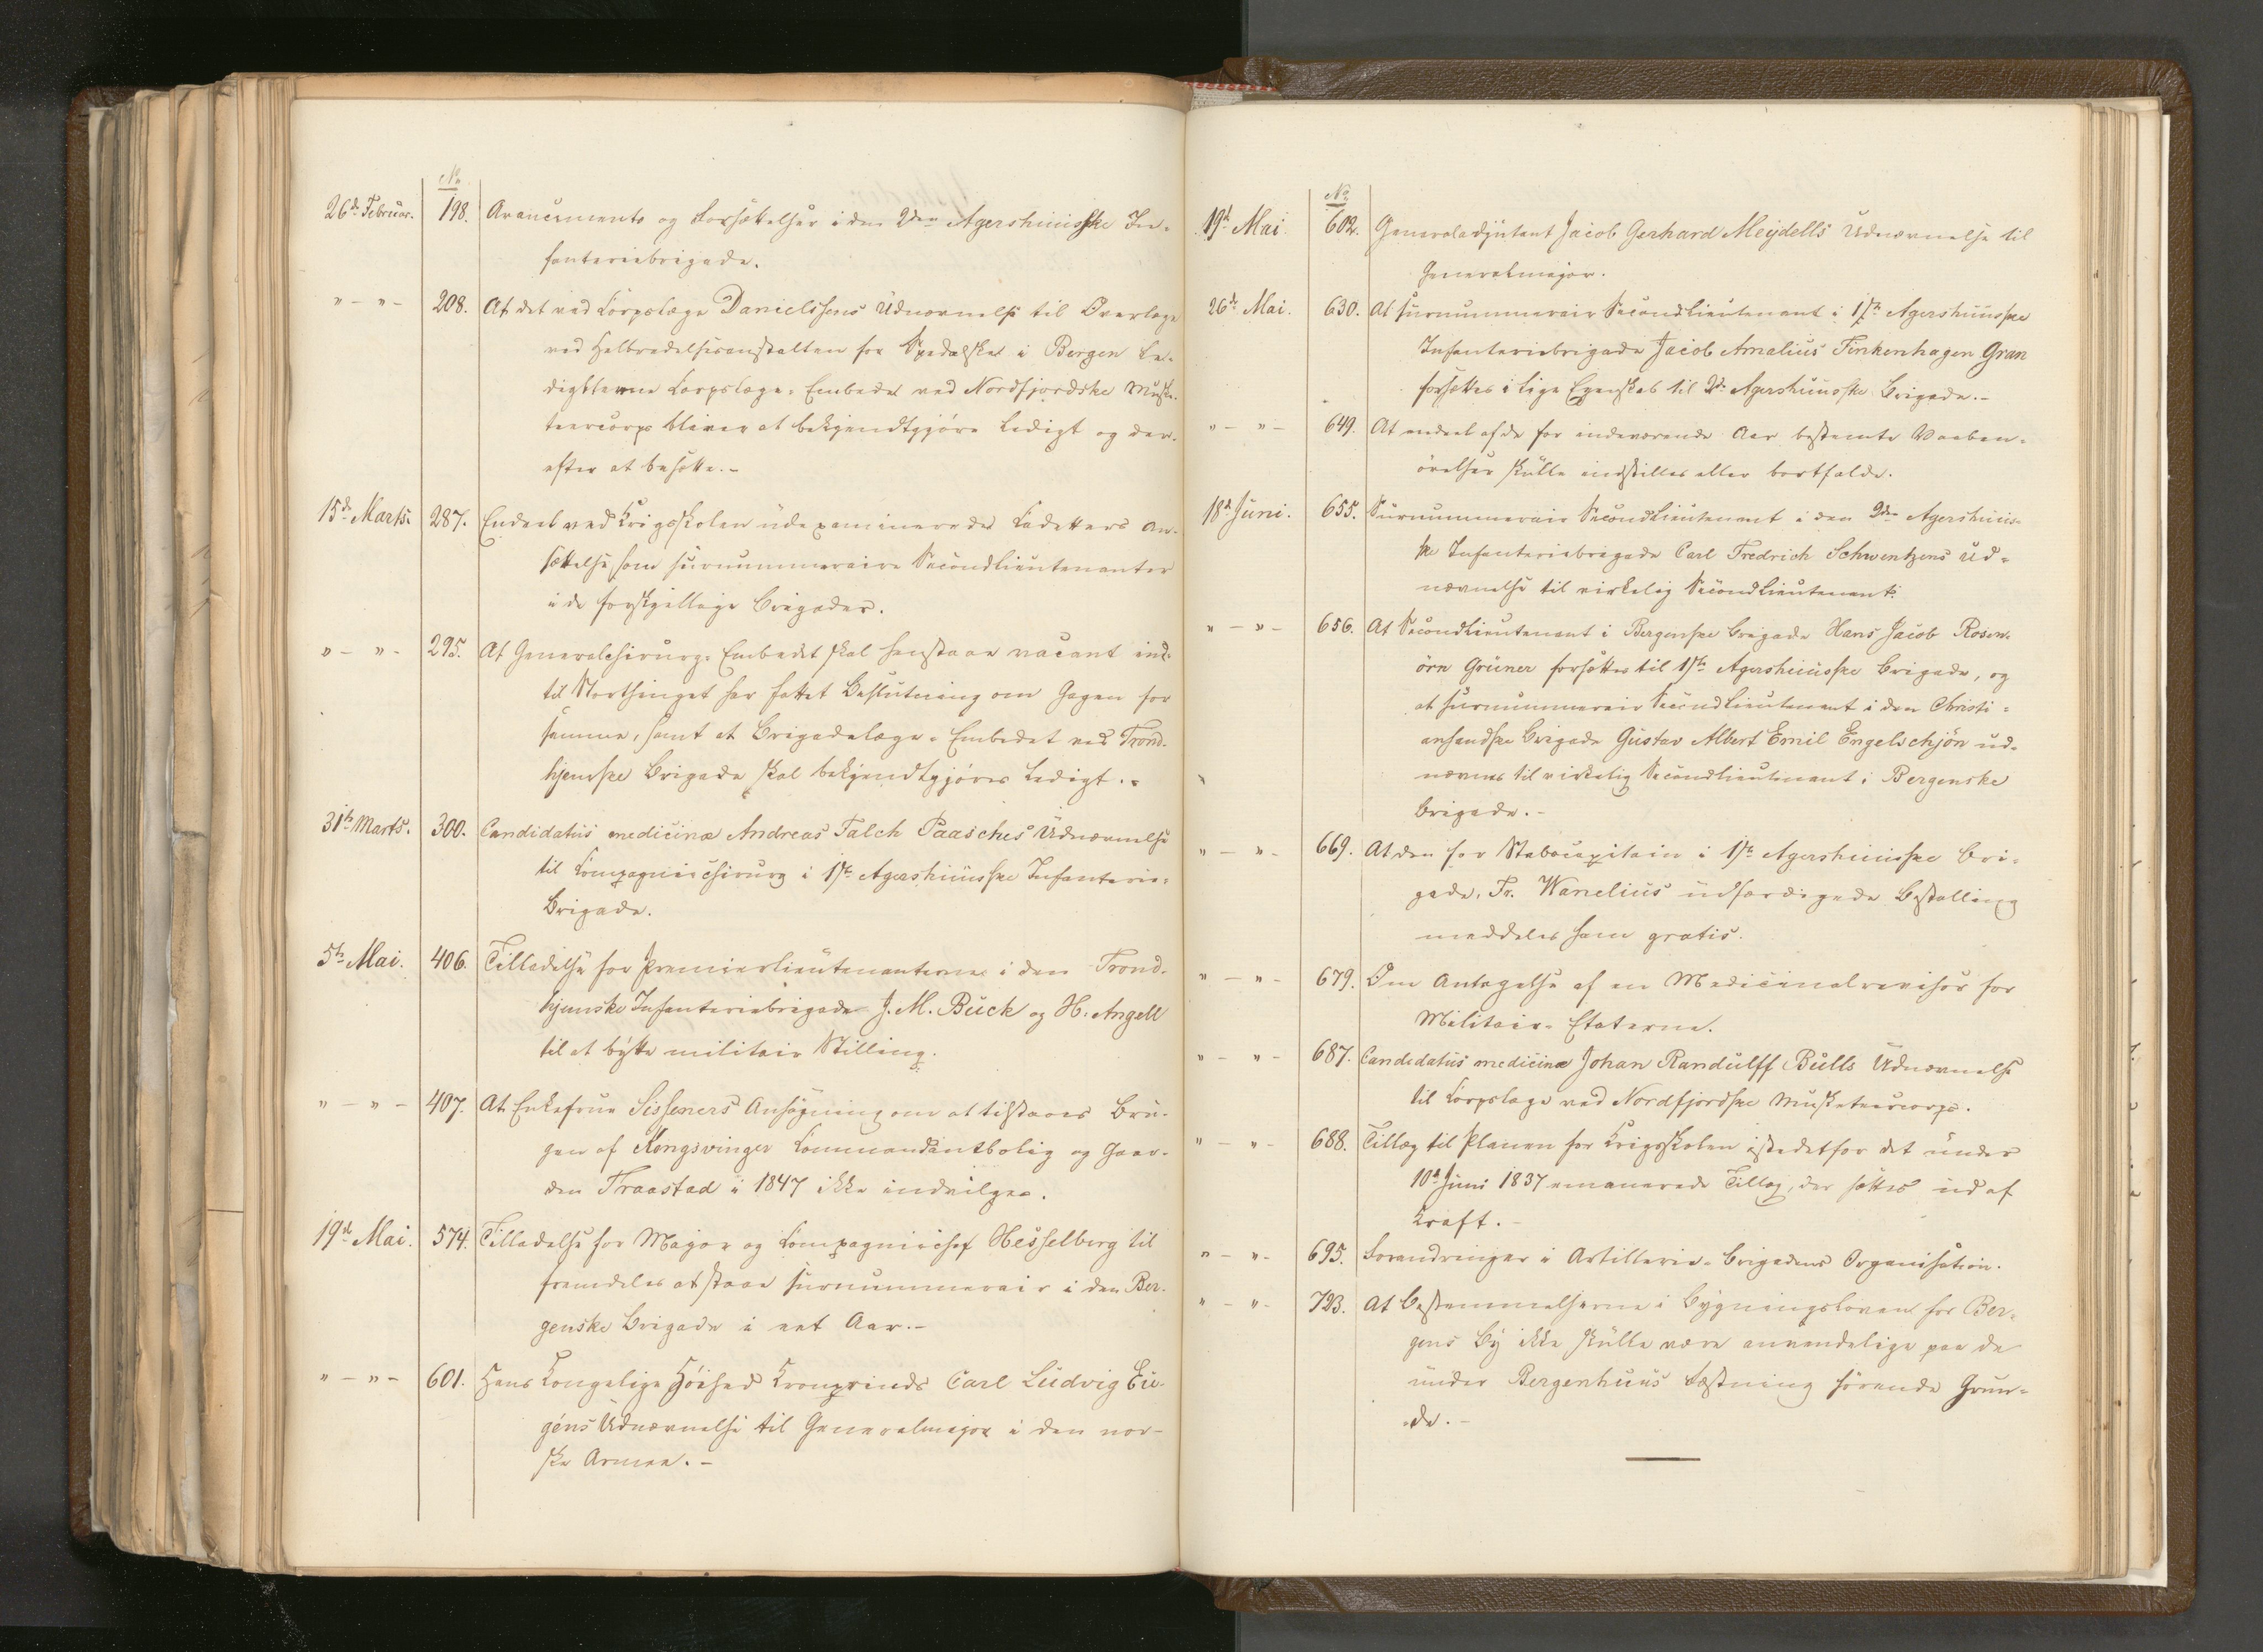 No
26de Februar. 198. Avancements og Forsættelser i den 2den Agershuusske In-
fanteriebrigade.
" - " - 208. At det ved Corpslæge Danielssens Udnævnelse til Overlæge
ved Helbredelsesanstalten for Spedalske i Bergen Le-
digblevne Corpslæge-Embede ved Nordfjordske Muske-
teercorps bliver at bekjendtgjöre Ledigt og der-
efter at besætte.-
15de Marts. 287. Endeel ved Krigsskolen udexaminerede Cadetters An-
sættelse som surnummeraire Secondlieutenanter
i de forskjellige Brigader.
" - " - 295. At Generalchirurg-Embedet skal henstaae vacant ind-
til Storthinget har fattet Beslutning om Gagen for
samme, samt at Brigadelæge-Embedet ved Trond-
hjemske Brigade skal bekjendtgjöres Ledigt.-
31te Marts. 300. Candidatus medicinæ Andreas Falch Paasches Udnævnelse
til Compagniechirurg i 1ste Agershuusske Infanterie-
Brigade.
5te Mai. 406. Tilladelse for Premierlieutenanterne i den Trond-
hjemske Infanteriebrigade J. M. Buck og H. Angell
til at bytte militair Stilling.
" - " - 407. At Enkefrue Sisseners Ansögning om at tilstaaes Bru-
gen af Kongsvinger Commandantbolig og Gaar-
den Traastad i 1847 ikke indvilges.
19de Mai. 574. Tilladelse for Major og Compagniechef Hesselberg til
fremdeles at staae surnummerair i den Ber-
genske Brigade i eet Aar.-
" - " - 601. Hans Kongelige Höihed Kronprinds Carl Ludvig Eu-
géns Udnævnelse til Generalmajor i den nor-
ske Armee.-
No
19de Mai. 602. Generaladjutant Jacob Gerhard Meydells Udnævnelse til
Generalmajor.
26de Mai. 630. At surnummerair Secondlieutenant i 1ste Agershuusske
Infanteriebrigade Jacob Amalius Finkenhagen Gran
forsættes i lige Egenskab til 2den Agershuusske Brigade.-
" - " - 649. At endeel af de for indeværende Aar bestemte Vaaben-
övelser skulle indstilles eller bortfalde.
18de Juni. 655. Surnummerair Secondlieutenant i den 2den Agershuus-
ske Infanteriebrigade Carl Fredrich Schwentzens Ud-
nævnelse til virkelig Secondlieutenant.
" - " - 656. At Secondlieutenant i Bergenske Brigade Hans Jacob Rosen-
örn Grüner forsættes til 1ste Agershuusske Brigade, og
at surnummerair Secondlieutenant i den Christi-
ansandske Brigade Gustav Albert Emil Engelschjön ud-
nævnes til virkelig Secondlieutenant i Bergenske
Brigade.-
" - " - 669. At den for Stabscapitain i 1ste Agershuusske Bri-
gade, Fr. Wanelius udfærdigede Bestalling
meddeles ham gratis.
" - " - 679. Om Antagelse af en Medicinalrevisor for
Militair-Etaterne.
" - " - 687. Candidatus medicinæ Johan Randulff Bulls Udnævnelse
til Corpslæge ved Nordfjordske Musketeercorps.
" - " - 688. Tillæg til Planen for Krigsskolen istedetfor det under
10de Juni 1837 emanerede Tillæg, der sættes ud af
Kraft.-
" - " - 695. Forandringer i Artillerie-Brigadens Organisation.
" - " - 723. At Bestemmelserne i Bygningsloven for Ber-
gens By ikke skulle være anvendelige paa de
under Bergenhuus Fæstning hörende Grun-
de.-